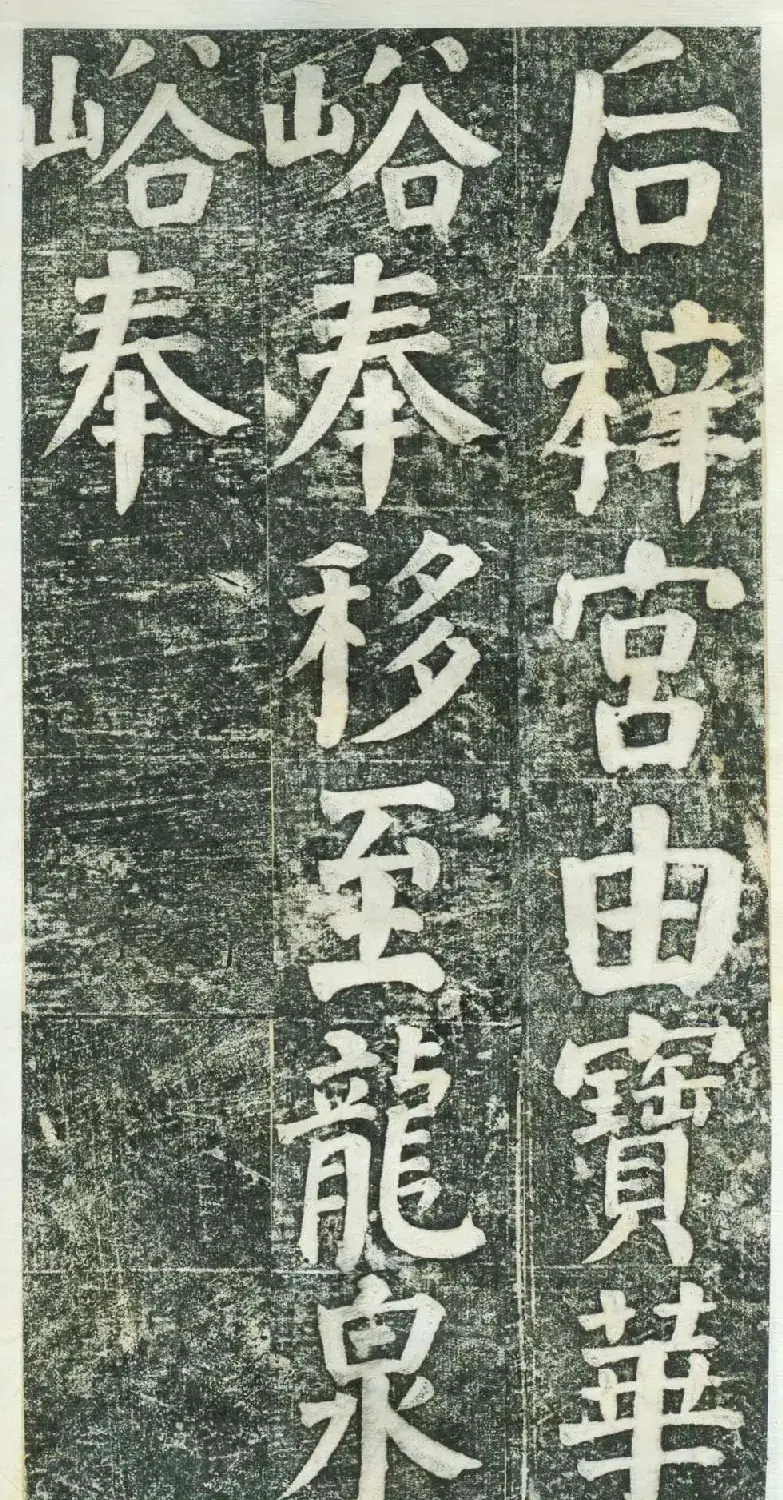 后梓宮由寶華
峪奉移至龍泉
峪奉